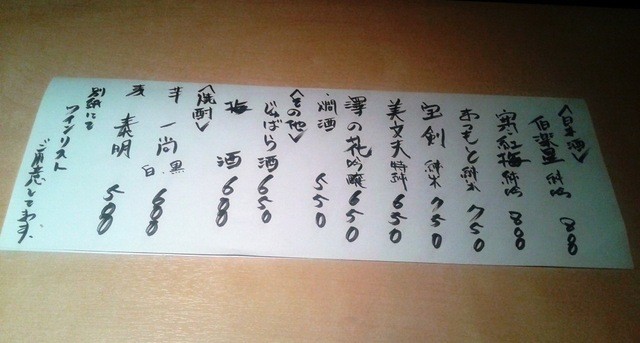 〈日本酒〉
伯楽星 純吟 800
寒紅梅 純吟 800
純米 750
宝剣 純米 750
美丈夫 特純 650
澤の花 吟醸 650
燗酒 550
〈その他〉
じゃばら酒 650
梅酒 600
〈焼酎〉
芋 一尚 黒 白 600
麦 泰明 500
別紙にて
ワインリスト
ご用意してます。